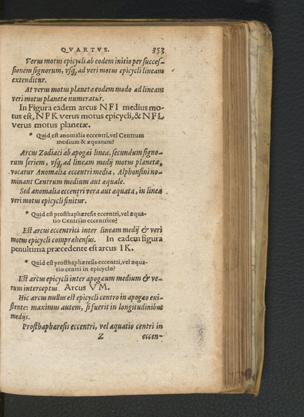 QVARTVS. 353
Verus motus epicycli ab eodem initio per successionem
signorum, vsq; ad veri motus epicycli lineam
extenditur.
At verus motus planetæ eodem modo ad lineam
veri motus planetæ numeratur.
In Figura eadem arcus NFI medius motus
est, NFK verus motus epicycli, & NFL
verus motus planetæ.
* Quid est anomalia eccentri, vel Centrum
medium & æquatum?
Arcus Zodiaci ab apogæi linea, secundum signorum
seriem, vsq; ad lineam medij motus planetæ,
vocatur Anomalia eccentri media, Alphonsini nominant
Centrum medium aut æquale.
Sed anomalia eccentri vera aut æquata, in linea
veri motus epicycli finitur.
* Quid est prosthaphæresis eccentri, vel æquatio
Centri in eccentrico?
Est arcus eccentrici inter lineam medij & veri
motus epicycli comprehensus. In eadem figura
penultima præcedente est arcus IK.
* Quid est prosthaphæresis eccentri, vel æquatio
centri in epicyclo?
Est arcus epicycli inter apogæum medium & verum
interceptus. Arcus VM.
Hic arcus nullus est epicycli centro in apogæo existente:
maximus autem, si fuerit in longitudinibus
medijs.
Prosthaphæresis eccentri, vel æquatio centri in
Z eccen-